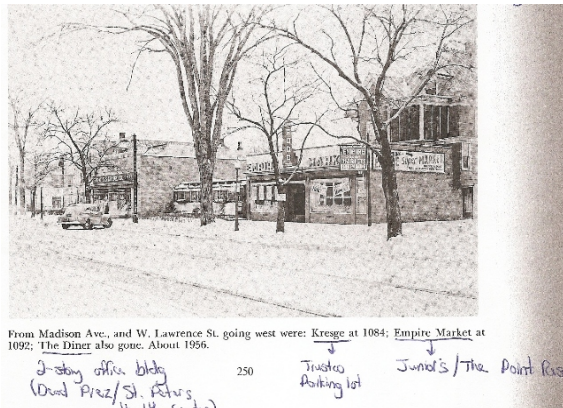 EMPIRE MARKET
SUPER MARKET
From Madison Ave., and W. Lawrence St. going west were: Kresge at 1084; Empire Market at
1092; The Diner also gone. About 1956.
2-story office bldg
(Dead Prez/St. Peters
250
Trustco
Parking lot
Junior's/The Point Res